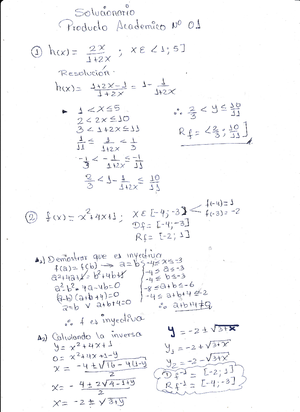 Solucionario
Producto Academico Nº 01
① h(x) = 2x / 1+2x ; x ∈ <1; 5]
Resolución:
h(x) = 1+2x-1 / 1+2x = 1 - 1 / 1+2x
1 < x ≤ 5
2 < 2x ≤ 10
3 < 1+2x ≤ 11
1/11 ≤ 1/1+2x < 1/3
-1/3 < -1/1+2x ≤ -1/11
2/3 < 1 - 1/1+2x ≤ 10/11
∴ 2/3 < y ≤ 10/11
Rf = <2/3; 10/11]
② f(x) = x²+4x+1 ; x ∈ [-4; -3]
f(-4)=1
f(-3)=-2
Df = [-4; -3]
Rf = [-2; 1]
a1) Demostrar que es inyectiva
f(a) = f(b) → a = b
a²+4a+1 = b²+4b+1
a²-b²+4a-4b=0
(a-b)(a+b+4)=0
a=b v a+b+4=0
∴ f es inyectiva
-4≤x≤-3
-4≤a≤-3
-4≤b≤-3
-8≤a+b≤-6
-4≤a+b+4≤-2
∴ a+b+4≠0
a2) Calculando la inversa
y = x²+4x+1
0 = x²+4x+1-y
x = -4±√16-4(1-y) / 2
x = -4±2√4-1+y / 2
x = -2 ± √3+y
y = -2±√3+x
y1 = -2+√3+x
y2 = -2-√3+x
= [-2; 1]
= [-4; -3]